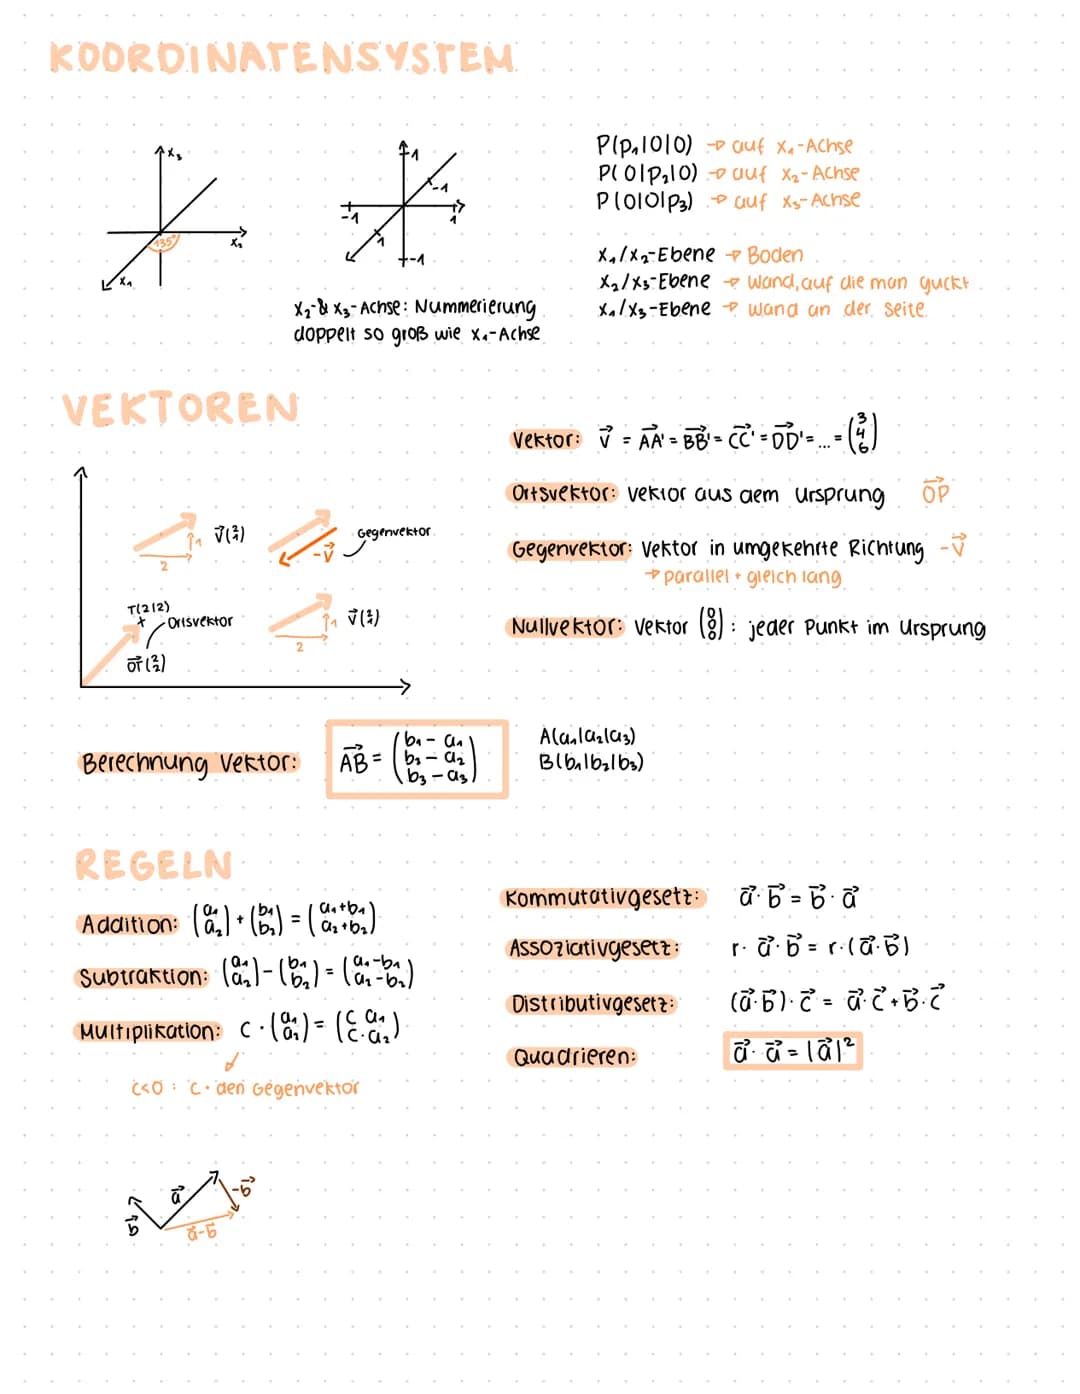 KOORDINATENSYSTEM
x₃
135°
x₂
x₁
1
-1
-1
1
1
-1
x₂- & x₃-Achse: Nummerierung
doppelt so groß wie x₁-Achse
P(p₁|0|0) → auf x₁-Achse
P(0|p₂|0) → auf x₂-Achse
P(0|0|p₃) → auf x₃-Achse
x₁/x₂-Ebene → Boden
x₂/x₃-Ebene → Wand, auf die man guckt
x₁/x₃-Ebene → wand an der Seite
VEKTOREN
Vektor: v⃗ = AA'⃗ = BB'⃗ = CC'⃗ = DD'⃗ = ... = (3 4 6)
Ortsvektor: Vektor aus dem Ursprung OP⃗
Gegenvektor: Vektor in umgekehrte Richtung -v⃗
→ parallel + gleich lang
Nullvektor: Vektor (0 0 0) : jeder Punkt im Ursprung
1
2
Gegenvektor
-v⃗
T(2|2)
Ortsvektor
OT⃗ (2 2)
1
2
Berechnung Vektor: AB⃗ = (b₁ - a₁ b₂ - a₂ b₃ - a₃)
A(a₁|a₂|a₃)
B(b₁|b₂|b₃)
REGELN
Addition: (a₁ a₂) + (b₁ b₂) = (a₁+b₁ a₂+b₂)
Subtraktion: (a₁ a₂) - (b₁ b₂) = (a₁-b₁ a₂-b₂)
Multiplikation: c · (a₁ a₂) = (c·a₁ c·a₂)
c<0 : c · den Gegenvektor
Kommutativgesetz: a⃗ · b⃗ = b⃗ · a⃗
Assoziativgesetz: r · a⃗ · b⃗ = r · (a⃗ · b⃗)
Distributivgesetz: (a⃗ · b⃗) · c⃗ = a⃗ · c⃗ + b⃗ · c⃗
Quadrieren: a⃗ · a⃗ = |a⃗|²
b⃗
a⃗
-b⃗
a⃗-b⃗